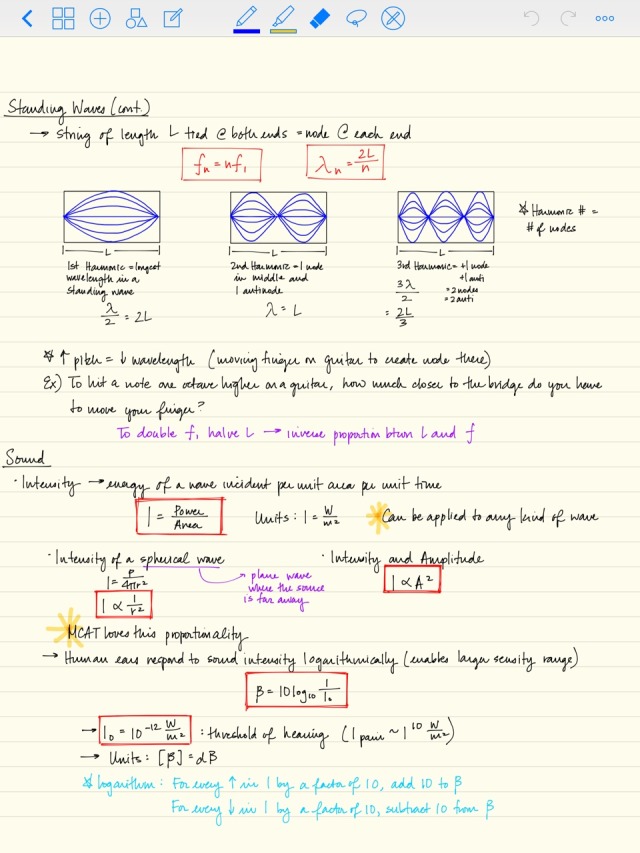 Standing Waves (cont.)
→ string of length L tied @ both ends = node @ each end
fₙ = nf₁
λₙ = 2L/n
L
L
L
1st Harmonic = longest
wavelength in a
standing wave
λ/2 = 2L
2nd Harmonic = 1 node
in middle and
1 antinode
λ = L
3rd Harmonic = +1 node
+1 anti
= 2 nodes
= 2 anti
3λ/2
= 2L/3
☆ Harmonic # =
# of nodes
☆ ↑ pitch = ↓ wavelength (moving finger on guitar to create node there)
Ex) To hit a note one octave higher on a guitar, how much closer to the bridge do you have
to move your finger?
To double f, halve L → inverse proportion btwn L and f
Sound
· Intensity → energy of a wave incident per unit area per unit time
I = Power/Area
Units: I = W/m²
Can be applied to any kind of wave
· Intensity of a spherical wave
I = P/4πr²
I ∝ 1/r²
plane wave
where the source
is far away
· Intensity and Amplitude
I ∝ A²
MCAT loves this proportionality
→ Human ears respond to sound intensity logarithmically (enables larger sensity range)
β = 10 log₁₀ I/I₀
→ I₀ = 10⁻¹² W/m² : threshold of hearing (I pain ~ 1¹⁰ W/m²)
→ Units: [β] = dB
☆ logarithm: For every ↑ in I by a factor of 10, add 10 to β
For every ↓ in I by a factor of 10, subtract 10 from β